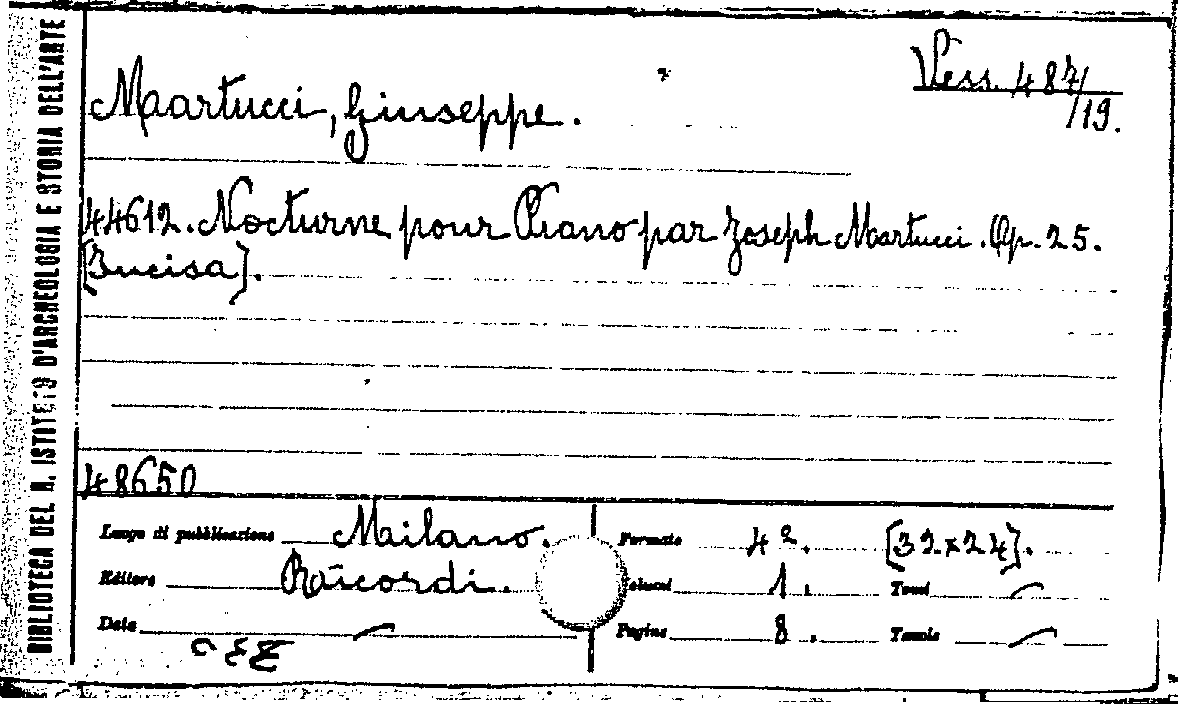 BIBLIOTECA DEL R. ISTITUTO D'ARCHEOLOGIA E STORIA DELL'ARTE
Vess. 487/19.
Martucci, Giuseppe.
44612. Nocturne pour Piano par Joseph Martucci. Op. 25.
[Incisa].
48650
Luogo di pubblicazione Milano. Formato 4º. [32x24].
Editore Ricordi. Volumi 1. Tomi —
Data — Pagine 8. Tavole —